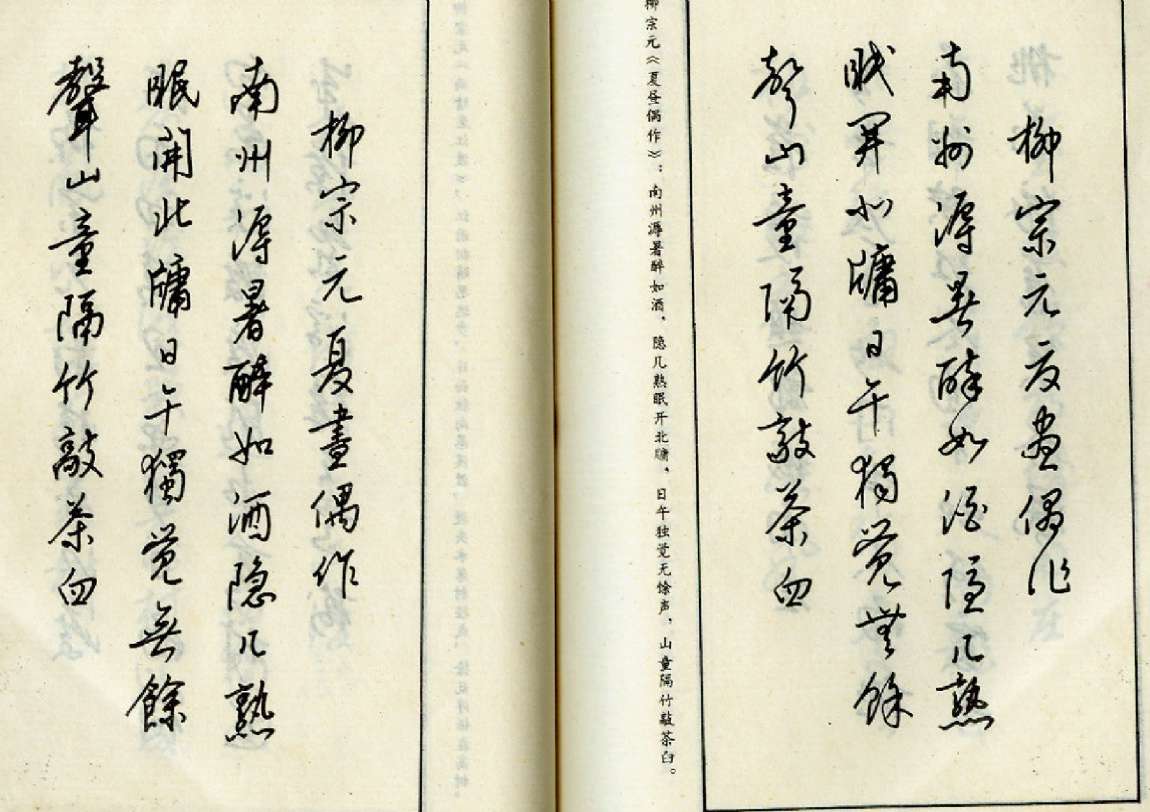 柳宗元夏晝偶作
南州溽暑醉如酒隱几熟
眠開北牖日午獨覺無餘
聲山童隔竹敲茶臼
柳宗元《夏昼偶作》：南州溽暑醉如酒，隐几熟眠开北牖，日午独觉无馀声，山童隔竹敲茶臼。
柳宗元夏晝偶作
南州溽暑醉如酒隐几熟
眠開北牖日午獨覺無餘
聲山童隔竹敲茶臼